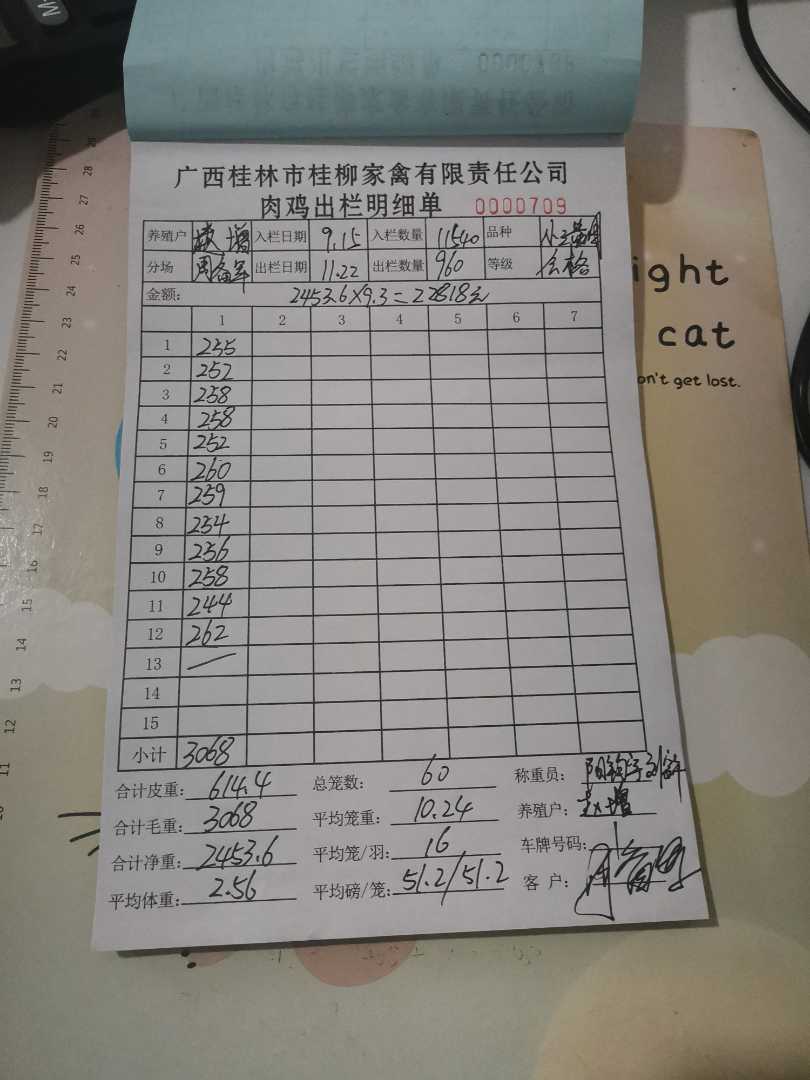 广西桂林市桂柳家禽有限责任公司
肉鸡出栏明细单 0000709
养殖户 增 入栏日期 9.15 入栏数量 11540 品种
分场 周备军 出栏日期 11.22 出栏数量 960 等级 合格
金额: 2453.6×9.3=22818元
1 2 3 4 5 6 7
1 255
2 252
3 258
4 258
5 252
6 260
7 259
8 254
9 256
10 258
11 244
12 262
13
14
15
小计 3068
合计皮重: 614.4 总笼数: 60 称重员:
合计毛重: 3068 平均笼重: 10.24 养殖户: 赵增
合计净重: 2453.6 平均笼/羽: 16 车牌号码:
平均体重: 2.56 平均磅/笼: 51.2/51.2 客户:
ight
cat
on't get lost.